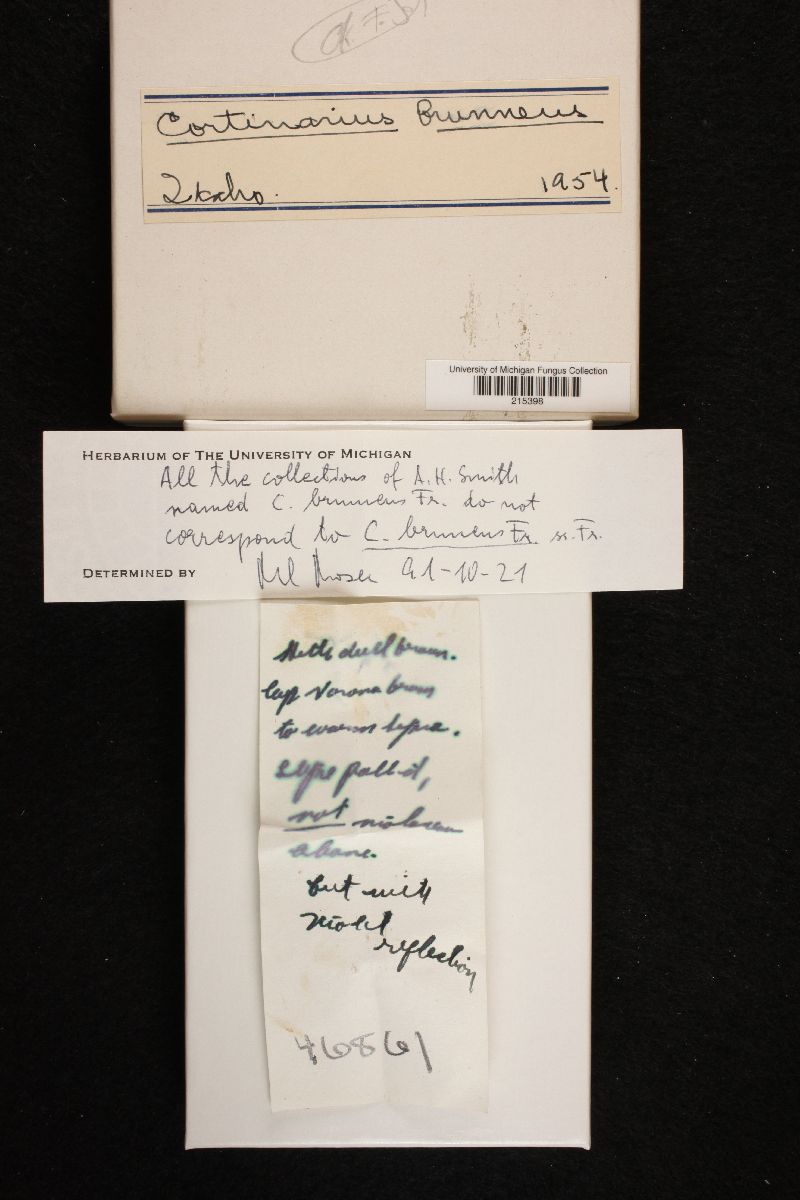 Cortinarius brunneus
Idaho. 1954.
University of Michigan Fungus Collection
215398
HERBARIUM OF THE UNIVERSITY OF MICHIGAN
All the collections of A.H. Smith
named C. brunneus Fr. do not
correspond to C. brunneus Fr. ss. Fr.
DETERMINED BY M. Moser 91-10-21
dull brown.
Cap Verona brown
to warm sepia.
Stipe pallid,
not violaceous
above.
but with
violet
reflection
46861